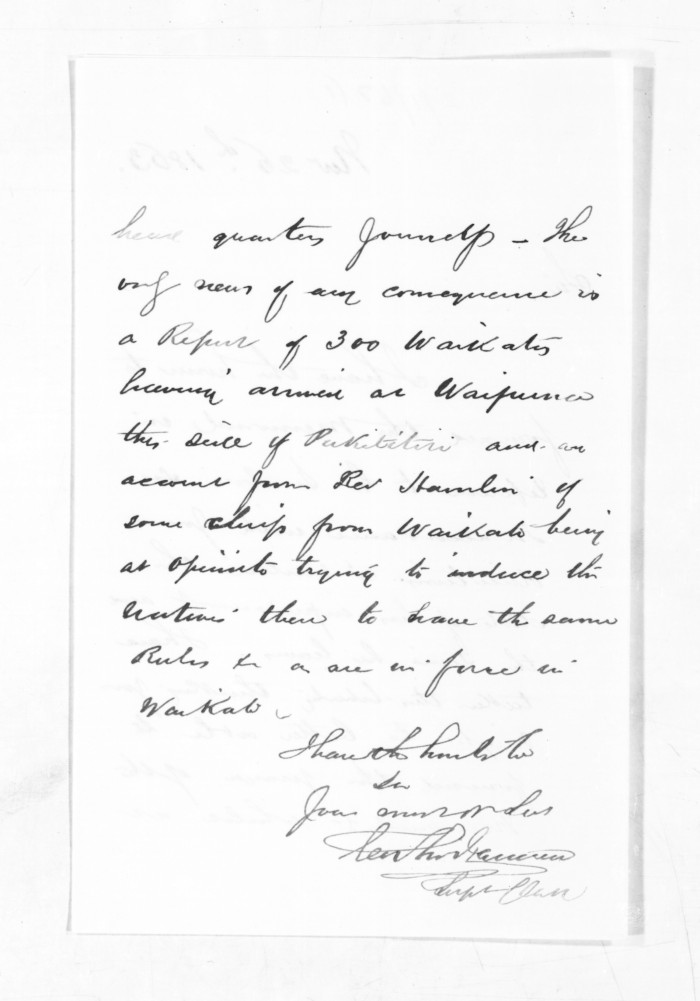 head quarters yourself - The
only news of any consequence is
a Report of 300 Waikatos
having arrived at
this side of and an
account from Rev Hamlin of
some chiefs from Waikato being
at trying to induce the
Natives there to have the same
Rules &c as are in force in
Waikato
I have the honor to be
Sir
Your most ob Ser